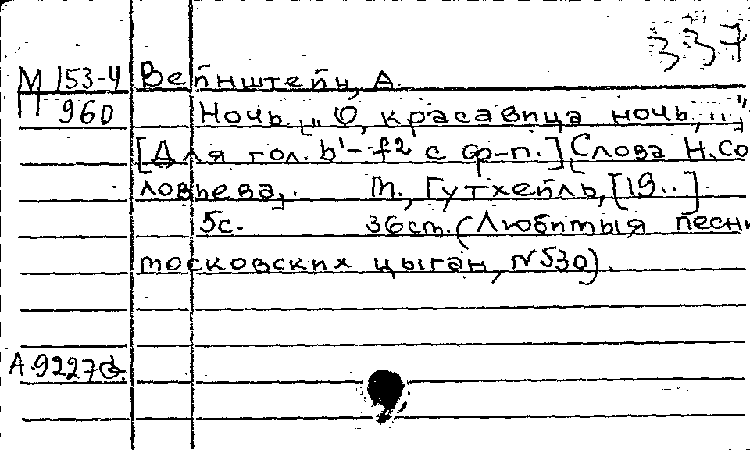 337
М 153-4 Вейнштейн, А.
П 960 Ночь. „О, красавица ночь,..."
[Для гол. b¹-f2 с ф-п.] Слова Н. Со
ловьева,. М., Гутхейль, [19..]
5с. 36см. (Любимыя песни
московских цыган, №530).
А 9227